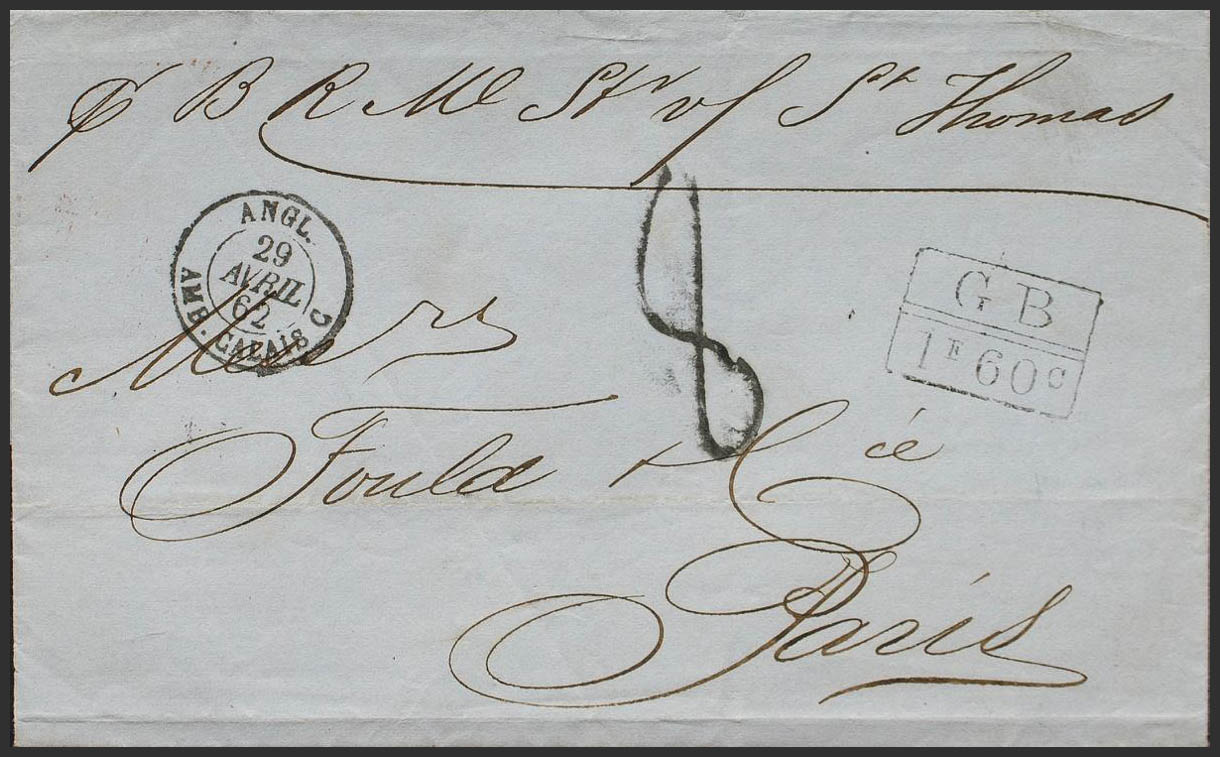 ℔ B R Ml Str v/ St Thomas
ANGL.
29
AVRIL
62
AMB. CALAIS C
8
G B
1F 60c
Messrs
Fould & Cie
Paris